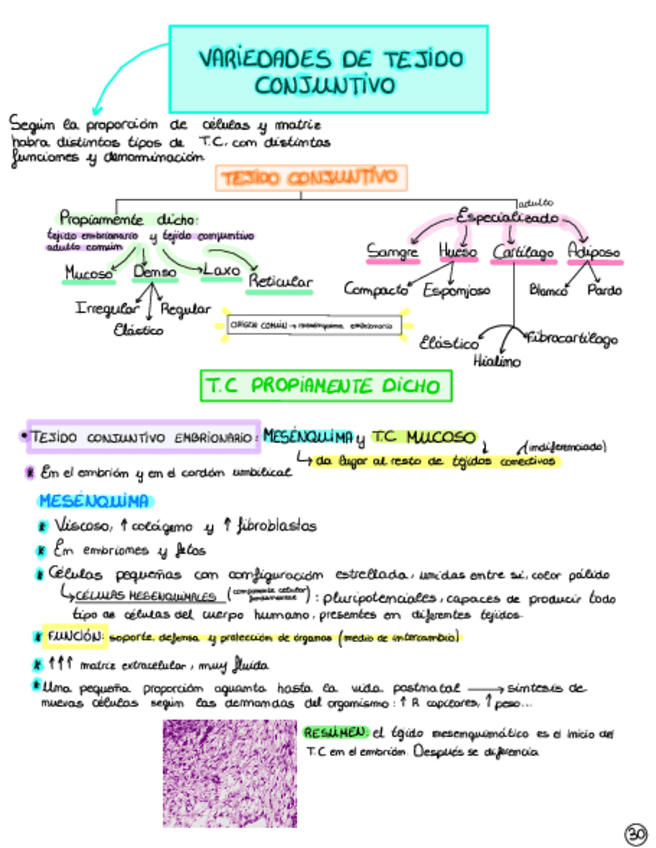 VARIEDADES DE TEJIDO
CONJUNTIVO
Según la proporción de células y matriz
habra distintos tipos de T.C. con distintas
funciones y denominación
TEJIDO CONJUNTIVO
Propiamente dicho:
tejido embrionario y tejido conjuntivo
adulto común
Mucoso Denso Laxo Reticular
Irregular Regular
Elástico
adulto
Especializado
Sangre Hueso Cartílago Adiposo
Compacto Esponjoso Blanco Pardo
Elástico Fibrocartílago
Hialino
ORIGEN COMÚN → mesénquima embrionario
T.C PROPIAMENTE DICHO
• TEJIDO CONJUNTIVO EMBRIONARIO: MESÉNQUIMA y T.C MUCOSO
(indiferenciado)
↳ da lugar al resto de tejidos conectivos
* En el embrión y en el cordón umbilical
MESÉNQUIMA
* Viscoso, ↑ colágeno y ↑ fibroblastos
* En embriones y fetos
* Células pequeñas con configuración estrellada, unidas entre sí, color pálido
↳ CÉLULAS MESENQUIMALES (componente celular fundamental): pluripotenciales, capaces de producir todo
tipo de células del cuerpo humano, presentes en diferentes tejidos.
* FUNCIÓN: soporte, defensa y protección de órganos (medio de intercambio)
* ↑↑↑ matriz extracelular, muy fluida
* Una pequeña proporción aguanta hasta la vida postnatal → síntesis de
nuevas células según las demandas del organismo: ↑ R capilares, ↑ peso...
RESUMEN: el tejido mesenquimático es el inicio del
T.C en el embrión. Después se diferencia
30